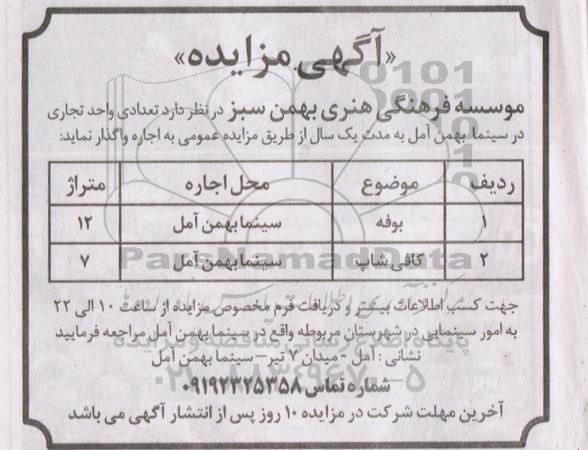 «آگهی مزایده»
موسسه فرهنگی هنری بهمن سبز در نظر دارد تعدادی واحد تجاری
در سینما بهمن آمل به مدت یک سال از طریق مزایده عمومی به اجاره واگذار نماید:
ردیف موضوع محل اجاره متراژ
۱ بوفه سینما بهمن آمل ۱۲
۲ کافی شاپ سینما بهمن آمل ۷
جهت کسب اطلاعات بیشتر و دریافت فرم مخصوص مزایده از ساعت ۱۰ الی ۲۲
به امور سینمایی در شهرستان مربوطه واقع در سینما بهمن آمل مراجعه فرمایید
نشانی : آمل - میدان ۷ تیر – سینما بهمن آمل
شماره تماس ۰۹۱۹۲۳۲۵۳۵۸
آخرین مهلت شرکت در مزایده ۱۰ روز پس از انتشار آگهی می باشد
ParsNamadData
پایگاه اطلاع رسانی مناقصه و مزایده
۰۲۱-۸۸۳۴۹۶۷۰-۵